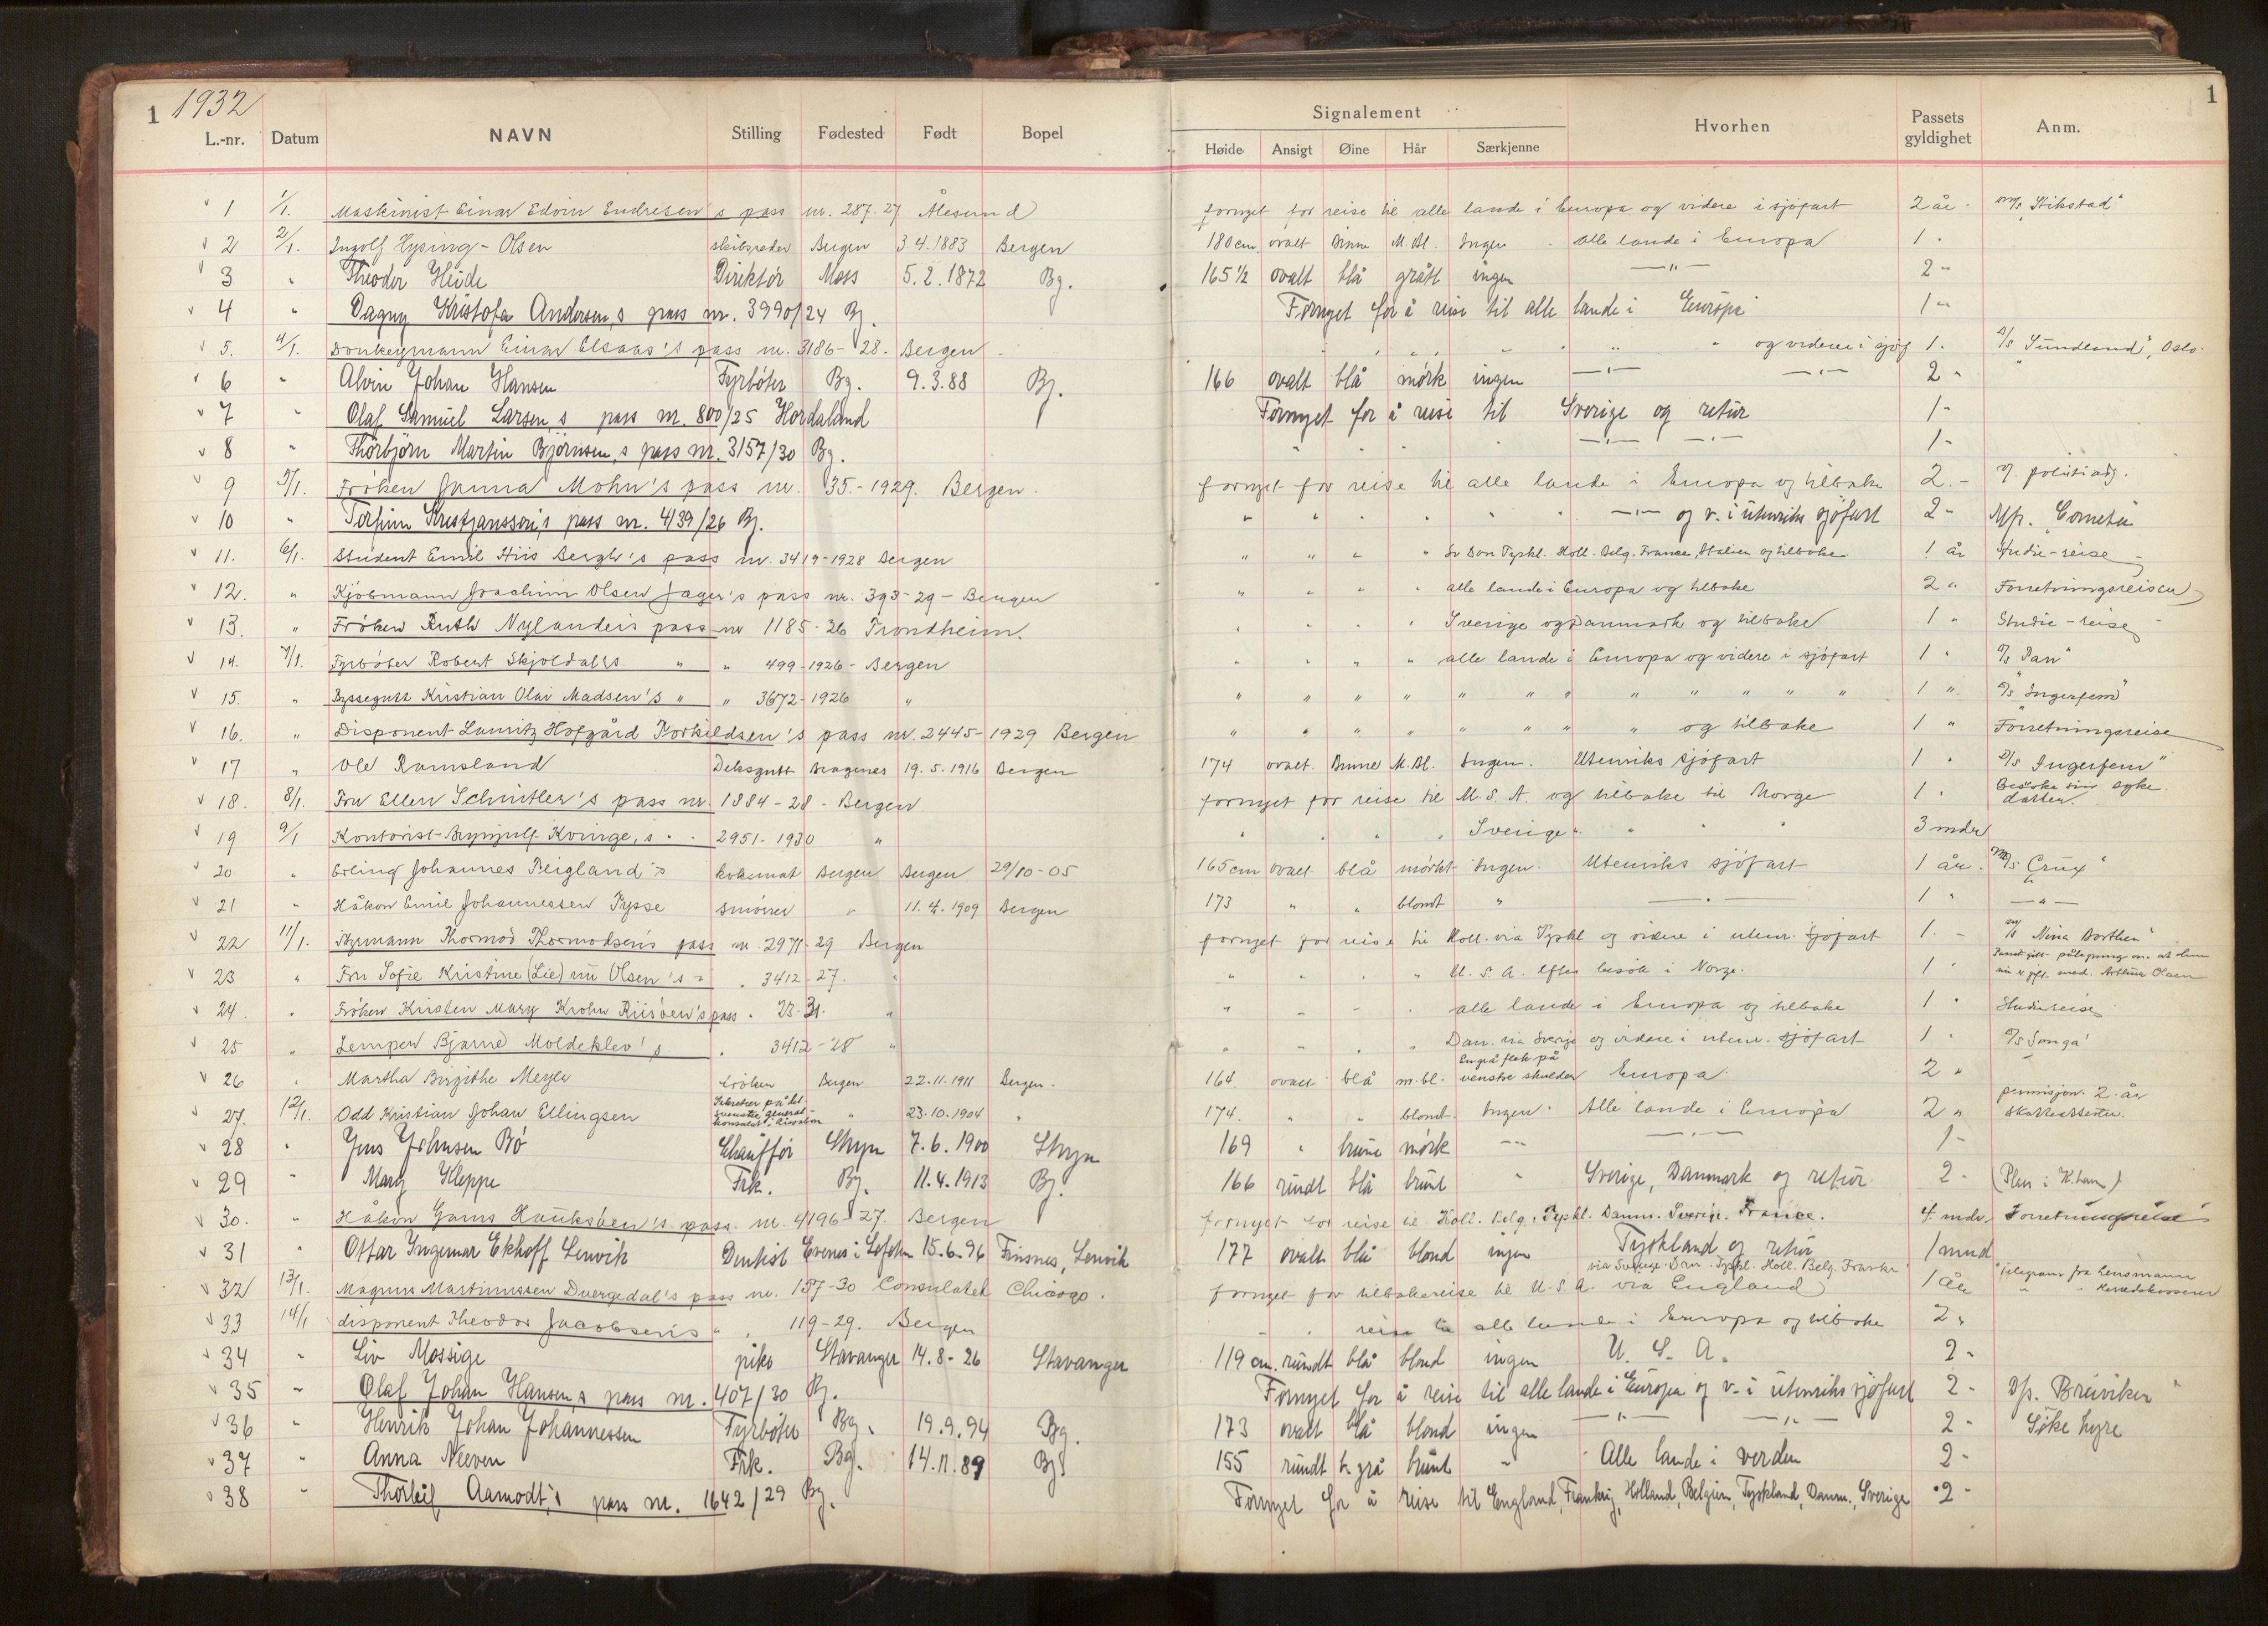 1 1932
L.-nr. Datum NAVN Stilling Fødested Født Bopel
Signalement Hvorhen Passets gyldighet Anm. 1
Høide Ansigt Øine Hår Særkjenne
1 1/1. Maskinist Einar Edvin Endresen's pass nr. 287-27 Ålesund fornyet for reise til alle lande i Europa og videre i sjøfart 2 år - M/S "Stikstad"
2 2/1. Ingolf Hysing-Olsen skibsreder Bergen 3.4.1883 Bergen 180 cm ovalt M.Bl. Ingen alle lande i Europa 1 "
3 " Theodor Heide Direktør Moss 5.2.1872 Bg. 165 1/2 ovalt blå grått ingen — " — 2 "
4 " Dagny Kristofa Andersen,s pass nr. 3990/24 Bg. Fornyet for å reise til alle lande i Europa 1 "
5. 4/1. Donkeymann Einar Elsaas's pass nr. 3186-28. Bergen " " " " " " og videre i sjøf 1. S/S "Sundland", Oslo.
6 " Alvin Johan Hansen Fyrbøter Bg. 9.3.88 Bg. 166 ovalt blå mørk ingen — " — — " — 2 "
7 " Olaf Samuel Larsen,s pass nr. 800/25 Hordaland Fornyet for å reise til Sverige og retur 1 "
8 " Thorbjørn Martin Bjørnsen,s pass nr. 3157/30 Bg. " " " — " — — " — 1 "
9 5/1. Frøken Janna Mohn's pass nr. 35.-1929. Bergen. fornyet for reise til alle lande i Europa og tilbake 2.- politiadj.
10 " Torfinn Kristjansson,s pass nr. 4139/26 Bg. " " " " " — " — og v. i utenriks sjøfart 2 " M/s. "Cometa"
11. 6/1. Student Emil Hiis Bergh's pass nr. 3419-1928 Bergen " " " " Sv Dan Tyskl. Holl. Belg. France, Italien og tilbake 1 år Studie-reise
12. " Kjøbmann Joachim Olsen Jager's pass nr. 393-29- Bergen " " " " alle lande i Europa og tilbake 2 " Forretningsreise
13. " Frøken Ruth Nylander's pass nr 1185-26 Trondheim. " " " " Sverige og Danmark og tilbake 1 " Studie-reise
14. 7/1. Fyrbøter Robert Skjoldal's " " 499-1926 - Bergen " " " " alle lande i Europa og videre i sjøfart 1 " S/S "Pan"
15. " Byssegutt Kristian Olai Madsen's " " 3672-1926 " " " " " " " " " " " " " 1 " S/S "Ingerfem"
16. " Disponent Lauritz Hofgård Torkildsen's pass nr. 2445-1929 Bergen " " " " " " " " og tilbake 1 " Forretningsreise
17 " Ole Ramsland Deksgutt 19.5.1916 Bergen 174 ovalt. Brune M.Bl. Ingen. Utenriks sjøfart 1 " S/S "Ingerfem"
18. 8/1. Fru Ellen Schmitler's pass nr. 1884-28 - Bergen fornyet for reise til U.S.A. og tilbake til Norge 1 " Besøke sin syke datter.
19 9/1 Kontorist Brynjulf Kvinge,s " " 2951-1930 " " " " " Sverige " " " " 3 mdr
20 " Erling Johannes Teigland kokemat Bergen Bergen 29/10-05 165 cm ovalt blå mørkt Ingen. Utenriks sjøfart 1 år. M/S "Crux"
21 " Håkon Emil Johannessen Tysse smører " 11.4.1909 Bergen 173 " " blondt " — " — 1 " — " —
22 11/1. Styrmann Thormod Thormodsen's pass nr. 2971-29 Bergen fornyet for reise til Holl. via Tyskl og videre i utenr. sjøfart 1. - S/S "Nina Borthen"
23 " Fru Sofie Kristine (Lie) nu Olsen's " " 3412-27. " " " " " U.S.A. efter besøk i Norge. 1 " påtegning om at hun nu er gift med Arthur Olsen
24. " Frøken Kirsten Mary Krohn Riisøen's pass " 23-31. " " " " " alle lande i Europa og tilbake 1 " Studiereise
25 " Lemper Bjarne Moldeklev's " 3412-28 " " " " " Dan. via Sverige og videre i utenr. sjøfart 1 " S/S "Songa"
26 " Martha Birgithe Meyer frøken Bergen 22.11.1911 Bergen. 164. ovalt blå m.bl. En grå flek på venstre skulder Europa 2 "
27. 12/1. Odd Kristian Johan Ellingsen Sekretær på det svenske general-konsulat " 23.10.1904 " 174. " " blondt Ingen. Alle lande i Europa 2 " permisjon. 2. år skatteattester.
28 " Jens Johnsen Bø Chauffør Stryn 7.6.1900 Stryn 169 " brune mørk — " — " — 1 "
29 " Mary Kleppe Frk. Bg. 11.4.1913 Bg. 166 rundt blå brunt " Sverige, Danmark og retur 2 " (Plen i K.havn)
30. " Håkon Gams Hauksøen's pass. nr. 4196-27. Bergen fornyet for reise til Holl. Belg. Tyskl. Danm. Sverige. France. 4 mdr. Forretningsreise
31 " Ottar Ingemar Ekhoff Lenvik Dentist Evenes i Lofoten 15.6.96 Finsnes, Lenvik 177 ovalt blå blond ingen Tyskland og retur 1 mnd
32 13/1. Magnus Martinussen Dvergedal's pass nr. 157-30 Consulatet Chicago. fornyet for tilbakereise til U.S.A. via England via Sverige-Dan-Tyskl-Holl. Belg. Frankr. 1 år Telegram fra Lensmann " " Herredskasserer
33 14/1 disponent Theodor Jacobsen's " " 119-29. Bergen " " reise til alle lande i Europa og tilbake 2 "
34 " Liv Mossige pike Stavanger 14.8-26 Stavanger 119 cm. rundt blå blond ingen U.S.A. 2 "
35 " Olaf Johan Hansen,s pass nr. 407/30 Bg. Fornyet for å reise til alle lande i Europa og v. i utenriks sjøfart 2 " D/s. "Breiviken"
36 " Henrik Johan Johannessen Fyrbøter Bg. 19.9.94 Bg. 173 ovalt blå blond ingen — " — — " — 2 " Søke hyre
37 " Anna Neeven Frk. Bg. 14.11.89 Bg 155 rundt b.grå brunt " Alle lande i verden 2 "
38 " Thorleif Aamodt,s pass nr. 1642/29 Bg. Fornyet for å reise til England, Frankrig, Holland, Belgien, Tyskland, Danm., Sverige 2 "